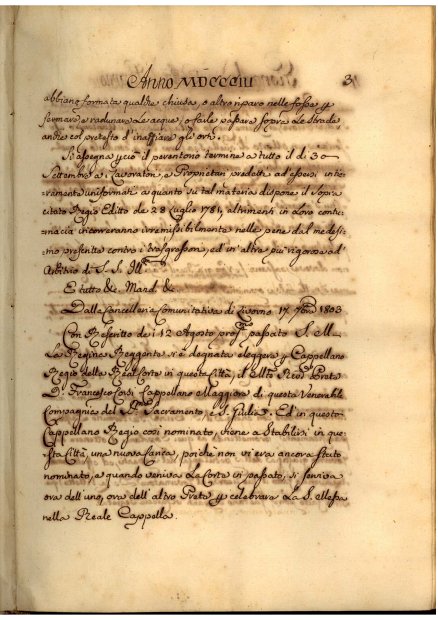 Anno MDCCCIII
3
abbiano formata qualche chiusa, o altro riparo nelle fosse p
fermare, e radunare le acque, o farle passare sopra le strade,
anche col pretesto d'inaffiare gli orti.
Si assegna p ciò il perentorio termine a tutto il dì 30
Settembre a Lavoratori, e Proprietari predetti ad essersi inte
ramente uniformati a quanto su tal materia dispone il sopra
citato Regio Editto de 28 Luglio 1781, altrimenti in loro contu
macia incorreranno irremissibilmente nelle pene dal medesi
mo prescritte contro i trasgressori, ed in altre più rigorose ad
Arbitrio di S. S. Ill
E tutto &c Mand. &c
Dalla Cancelleria Comunitativa di Livorno 17. 1803
Con Rescritto de 12 Agosto pross passato S. M.
La Regina Reggente si è degnata eleggere p Cappellano
Regio della Real Corte in questa Città, il Prete
D. Francesco Cappellano Maggiore di questa Venerabile
Compagnia del Sacramento, e S. Giulia. Ed in questo
Cappellano Regio così nominato, viene a Stabilirsi in que
sta Città una nuova Carica, poichè non vi era ancora stato
nominato, e quando veniva la Corte in passato, si serviva
ora dell'uno, ora dell'altro Prete p celebrare la S. Messa
nella Reale Cappella.